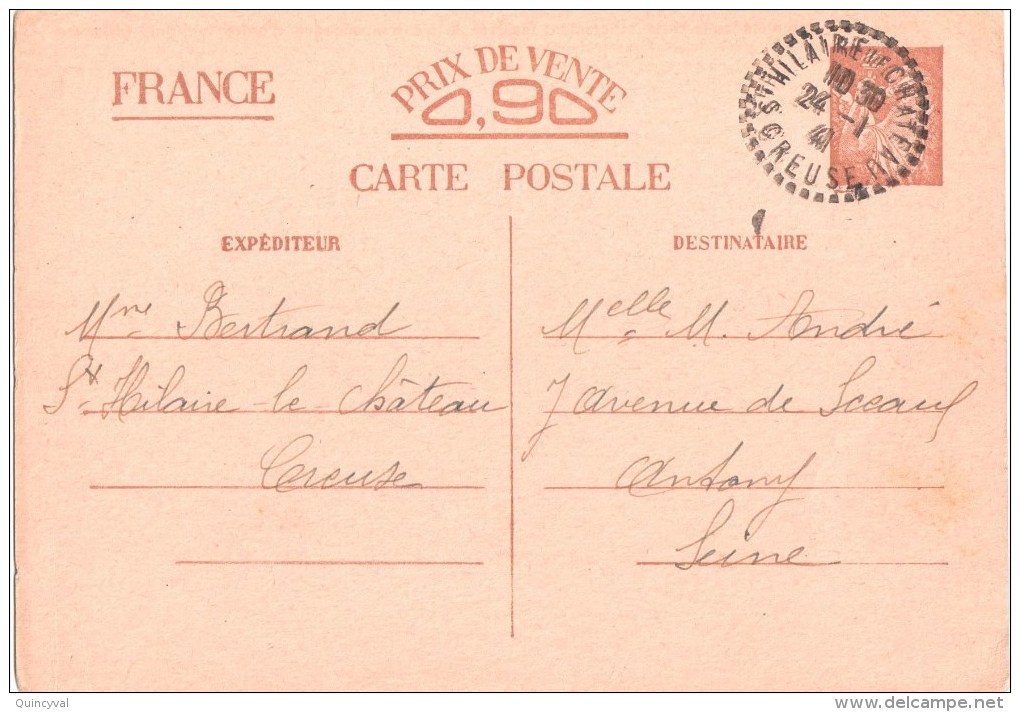 FRANCE
PRIX DE VENTE
0,90
CARTE POSTALE
ST HILAIRE LE CHATEAU
10 30
24 -1
41
CREUSE
EXPÉDITEUR
Mme Bertrand
St Hilaire-le-Château
Creuse
DESTINATAIRE
Melle M. André
7 avenue de Sceaux
Antony
Seine
Quincyval
www.delcampe.net